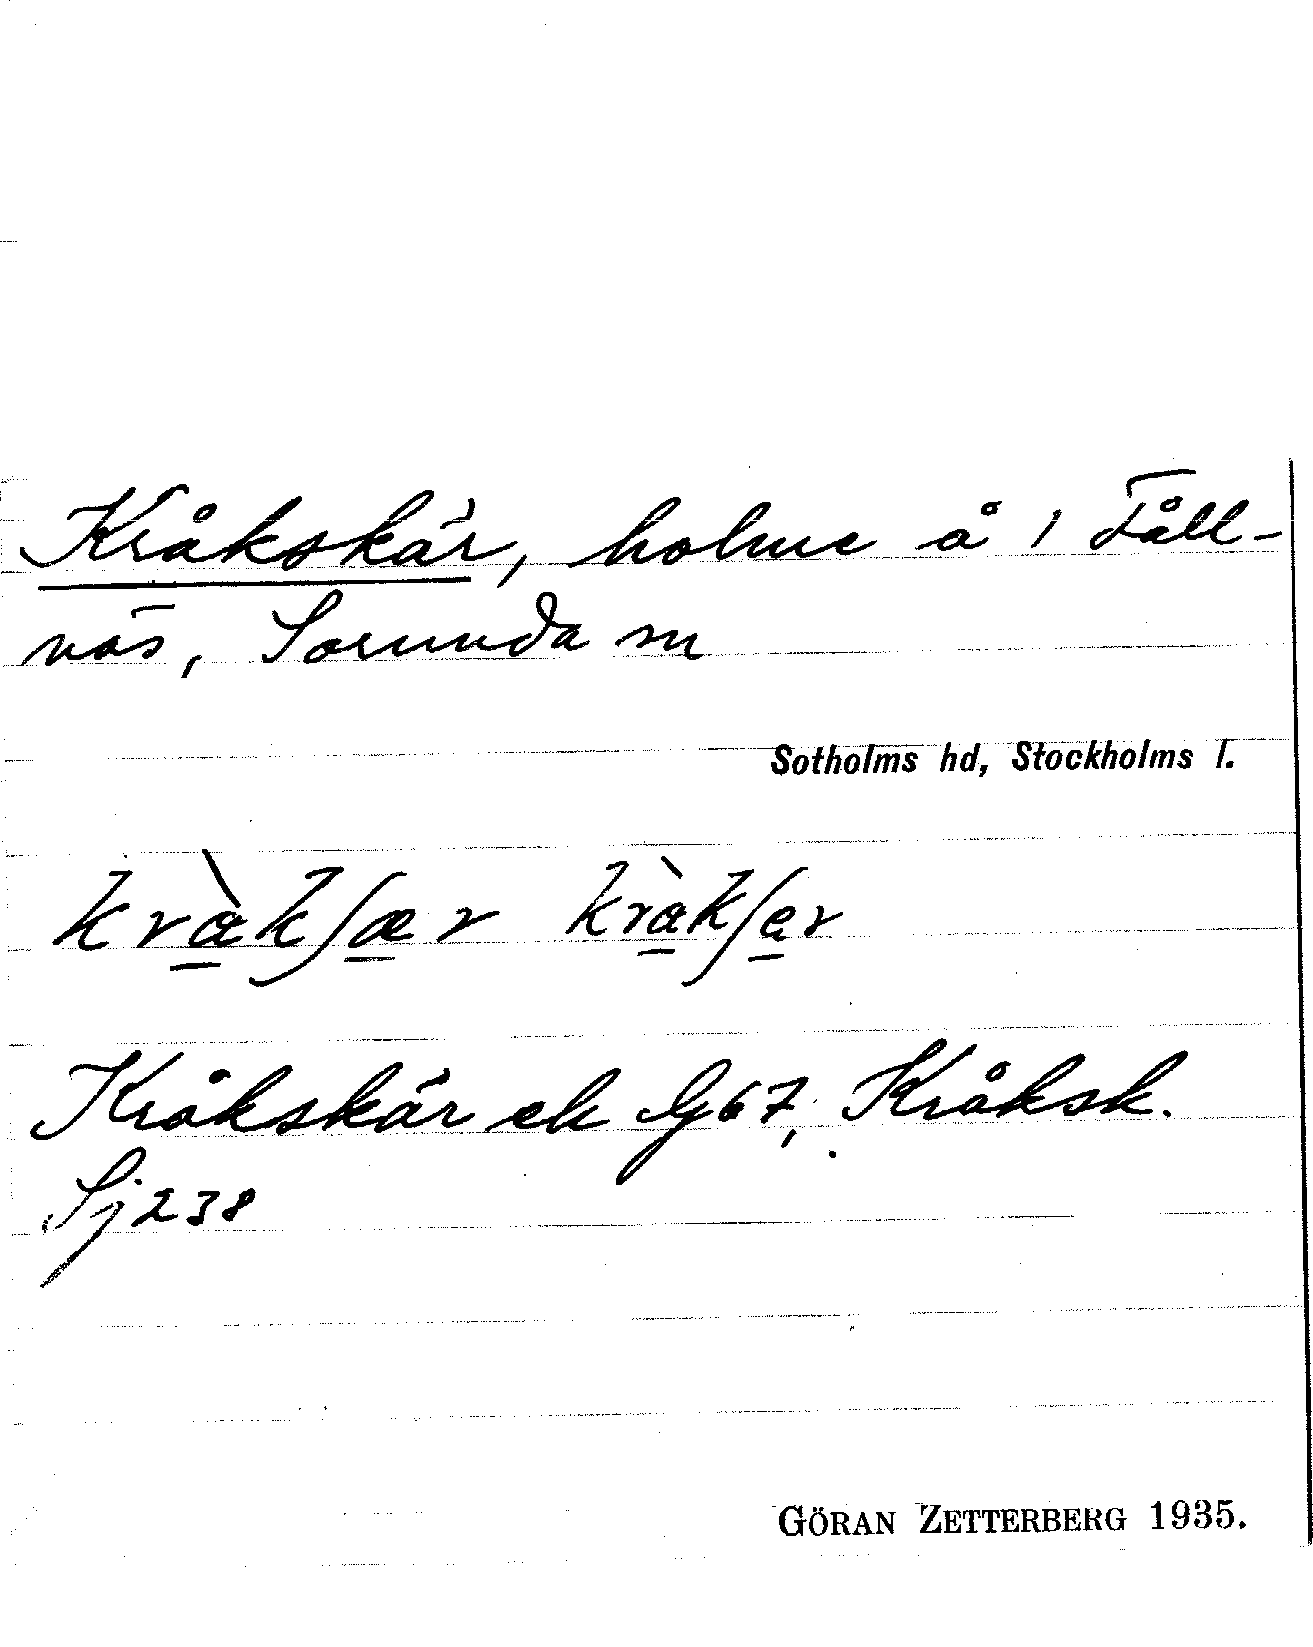 Kråkskär, holme å 1 Fåll-
näs, Sorunda sn
Sotholms hd, Stockholms l.
kràkʃær kràkʃer
Kråkskär ek G67, Kråksk.
Sj 238
GÖRAN ZETTERBERG 1935.